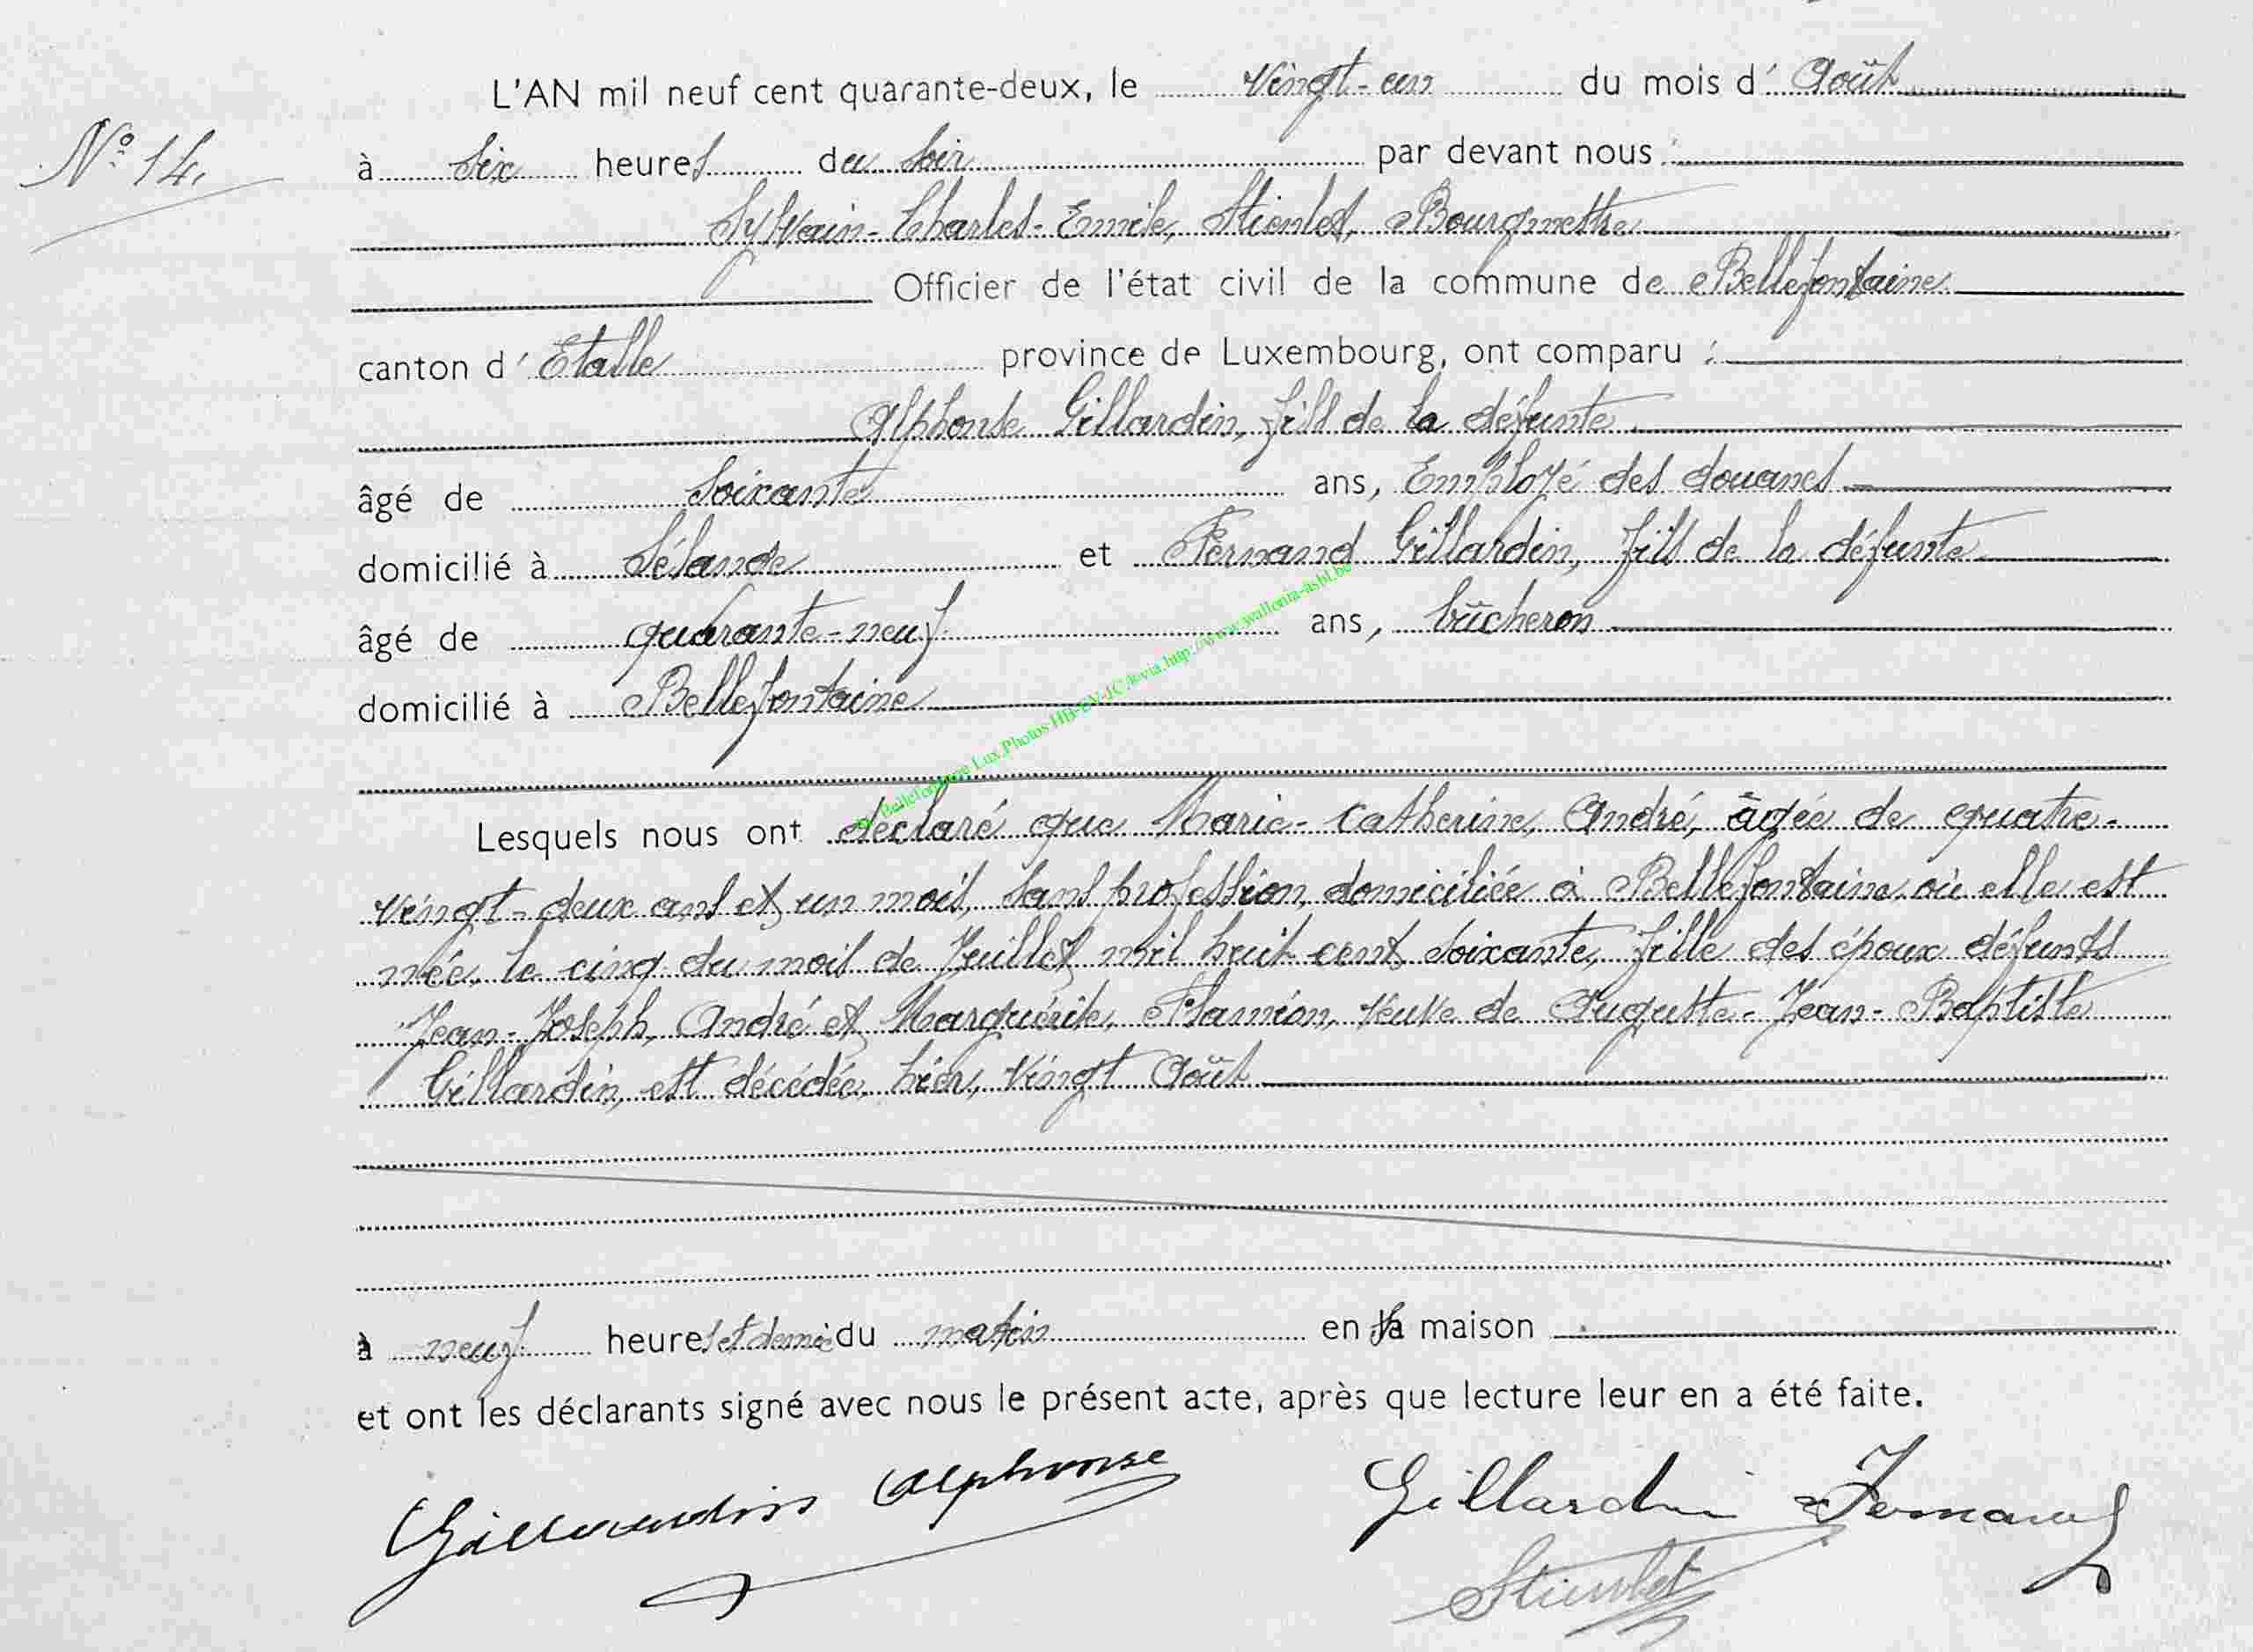 L'AN mil neuf cent quarante-deux, le vingt-un du mois d' Août
N° 14.
à six heures du soir par devant nous
Sylvain-Charles-Emile, Stienlet, Bourgmestre
Officier de l'état civil de la commune de Bellefontaine
canton d' Etalle province de Luxembourg, ont comparu :
Alphonse Gillardin, fils de la défunte
âgé de soixante ans, Employé des douanes
domicilié à Sélange et Fernand Gillardin, fils de la défunte
âgé de quarante-neuf ans, bûcheron
domicilié à Bellefontaine
Bellefontaine Lux.Photos via http://www.wallonia-asbl.be
Lesquels nous ont déclaré que Marie-Catherine, André, âgée de quatre-
vingt-deux ans et un mois, sans profession, domiciliée à Bellefontaine où elle est
née le cinq du mois de Juillet mil huit cent soixante, fille des époux défunts
Jean-Joseph, André et Marguérite, Flamion, veuve de Auguste-Jean-Baptiste
Gillardin, est décédée hier, vingt Août
à neuf heures et demie du matin en sa maison
et ont les déclarants signé avec nous le présent acte, après que lecture leur en a été faite.
Gillardin Alphonse Gillardin Fernand
Stienlet